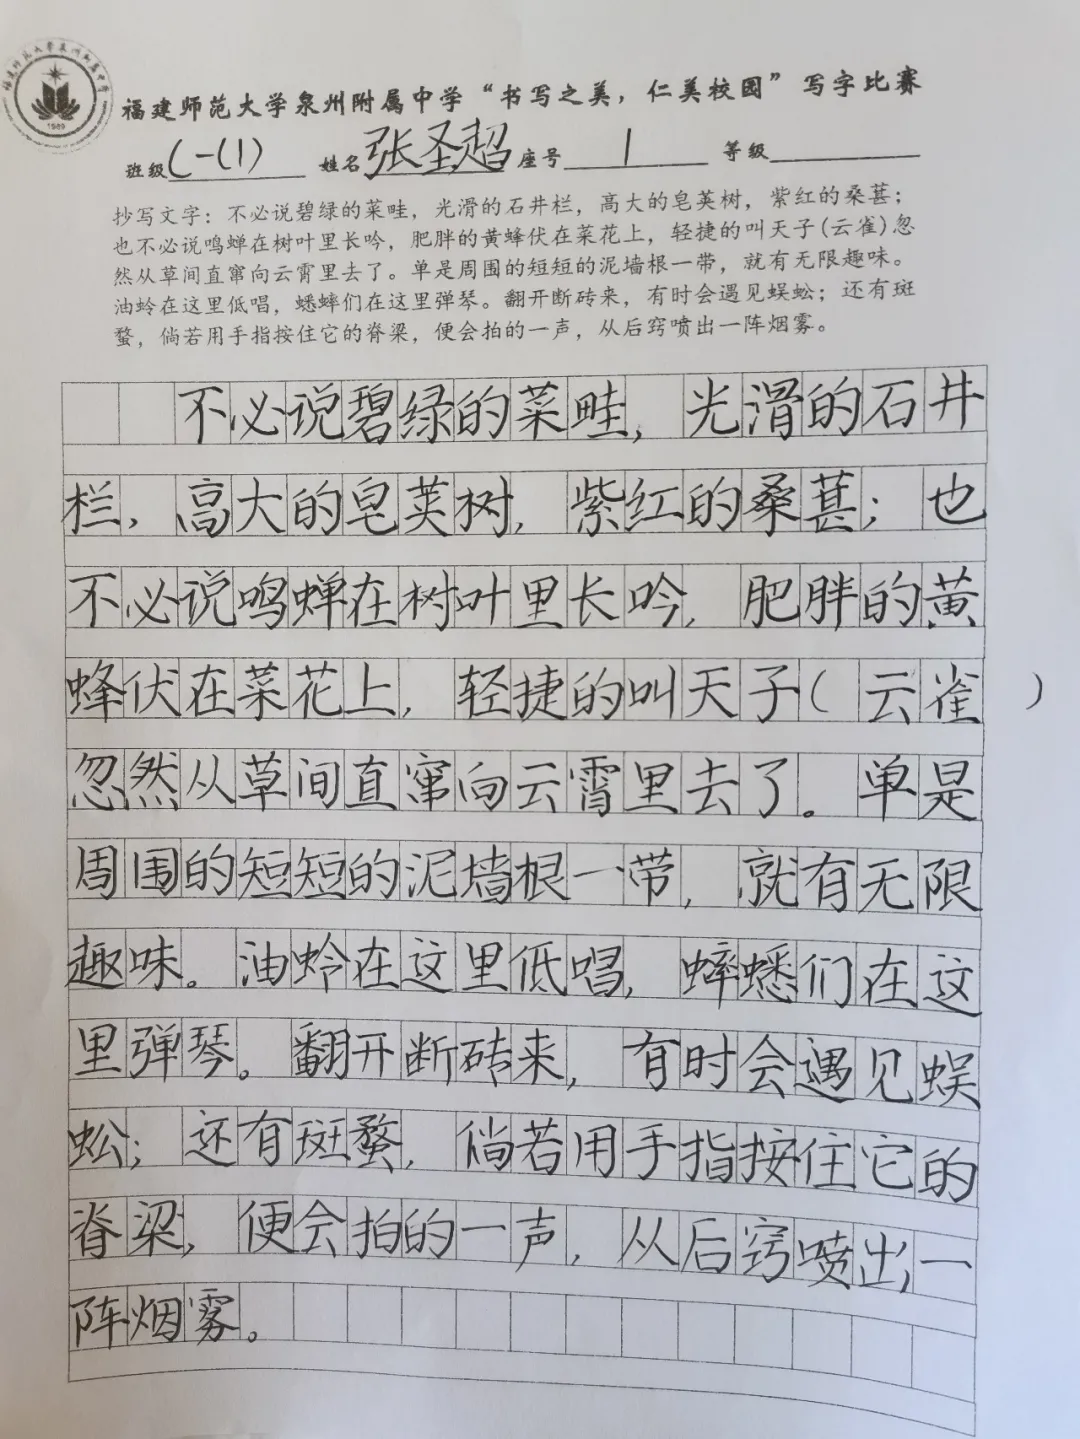 福建师范大学泉州附属中学“书写之美，仁美校园”写字比赛
班级 姓名张圣超座号 1 等级
抄写文字：不必说碧绿的菜畦，光滑的石井栏，高大的皂荚树，紫红的桑葚；
也不必说鸣蝉在树叶里长吟，肥胖的黄蜂伏在菜花上，轻捷的叫天子(云雀)忽
然从草间直窜向云霄里去了。单是周围的短短的泥墙根一带，就有无限趣味。
油蛉在这里低唱，蟋蟀们在这里弹琴。翻开断砖来，有时会遇见蜈蚣；还有斑
蝥，倘若用手指按住它的脊梁，便会拍的一声，从后窍喷出一阵烟雾。
不必说碧绿的菜畦，光滑的石井
栏，高大的皂荚树，紫红的桑葚；也
不必说鸣蝉在树叶里长吟，肥胖的黄
蜂伏在菜花上，轻捷的叫天子（云雀）
忽然从草间直窜向云霄里去了。单是
周围的短短的泥墙根一带，就有无限
趣味。油蛉在这里低唱，蟀蟋们在这
里弹琴。翻开断砖来，有时会遇见蜈
蚣；还有斑蝥，倘若用手指按住它的
脊梁，便会拍的一声，从后窍喷出一
阵烟雾。